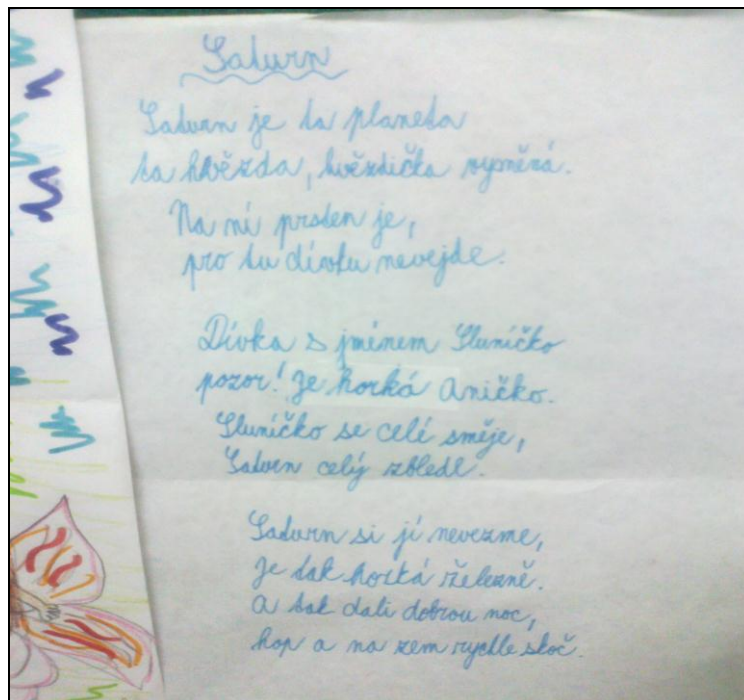 Saturn
Saturn je ta planeta
ta hvězda, hvězdička vysněná.
Na ní prsten je,
pro tu dívku nevejde.
Dívka s jménem Sluníčko
pozor! Je horká Aničko.
Sluníčko se celé směje,
Saturn celý zbledl.
Saturn si jí nevezme,
Je tak horká železně.
A tak dali dobrou noc,
hop a na zem rychle skoč.